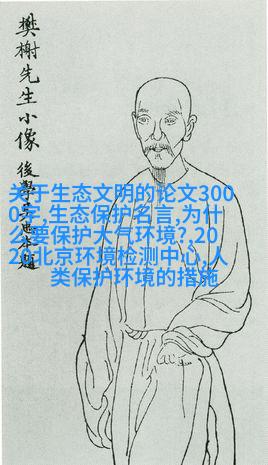 樊榭先生小像
後學
关于生态文明的论文300
0字,生态保护名言,为什
么要保护大气环境?,20
20北京环境检测中心,人
类保护环境的措施